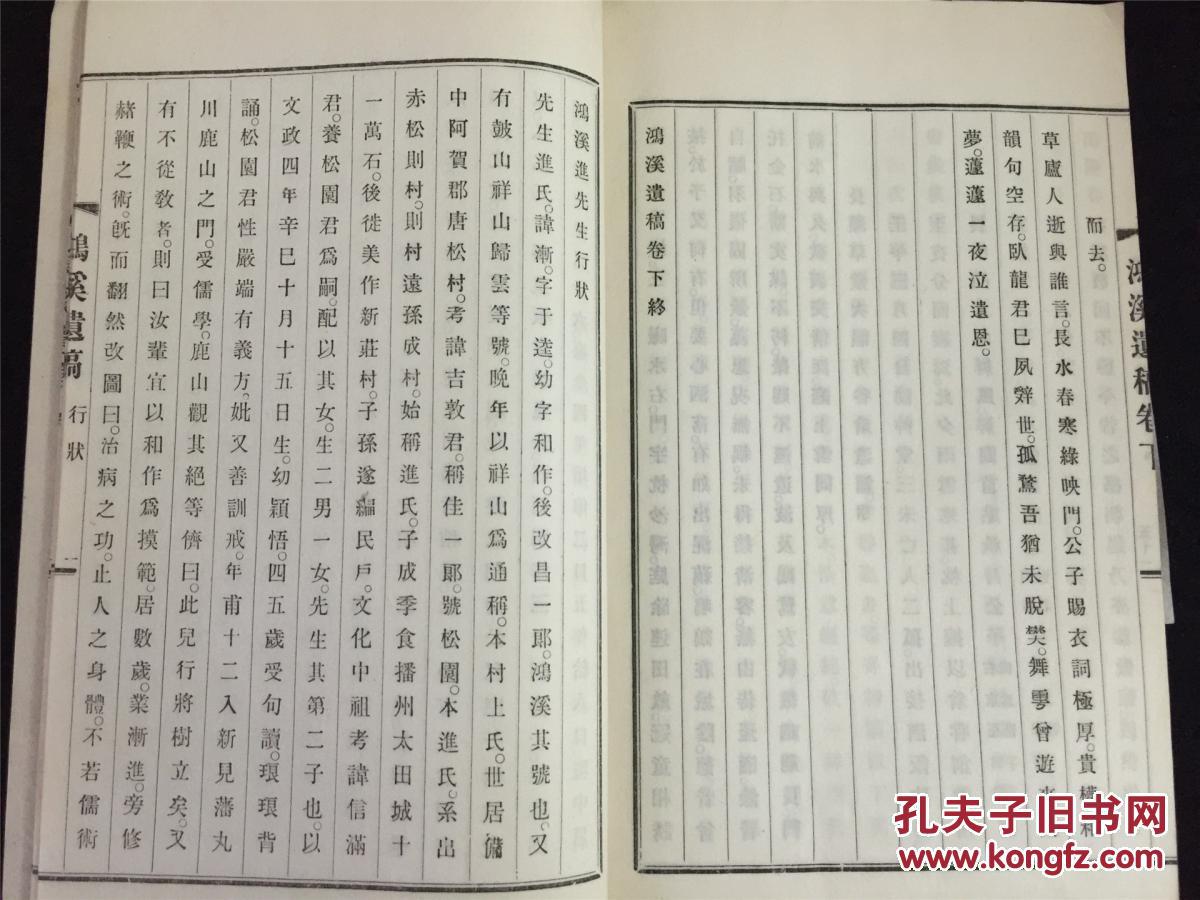 鴻溪遺稿卷下
而去。
草廬人逝與誰言。長水春寒綠映門。公子賜衣詞極厚。貴
韻句空存。臥龍君已夙辭世。孤鶩吾猶未脫樊。舞雩曾遊
夢。蘧蘧一夜泣遺恩。
鴻溪遺稿卷下終
鴻溪進先生行狀
先生進氏。諱漸。字于逵。幼字和作。後改昌一郞。鴻溪其號也。又
有鼓山祥山歸雲等號。晚年以祥山爲通稱。本村上氏。世居備
中阿賀郡唐松村。考諱吉敦君。稱佳一郞。號松園。本進氏。系出
赤松則村。則村遠孫成村。始稱進氏。子成季食播州太田城十
一萬石。後徙美作新莊村。子孫遂編民戶。文化中祖考諱信滿
君。養松園君爲嗣。配以其女。生二男一女。先生其第二子也。以
文政四年辛巳十月十五日生。幼穎悟。四五歲受句讀。琅琅背
誦。松園君性嚴端有義方。妣又善訓戒。年甫十二入新見藩丸
川鹿山之門。受儒學。鹿山觀其絕等儕曰。此兒行將樹立矣。又
有不從敎者。則曰汝輩宜以和作爲摸範。居數歲。業漸進。旁修
赭鞭之術。旣而翻然改圖曰。治病之功。止人之身體。不若儒術
鴻溪遺稿
行狀
一
孔夫子旧书网
www.kongfz.com